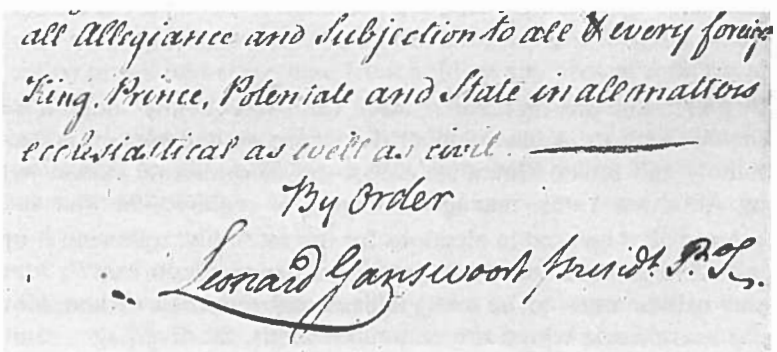 all Allegiance and Subjection to all & every foreign
King, Prince, Potentate and State in all matters
ecclesiastical as well as civil
By order
Leonard Gansevoort Presidt. P. T.